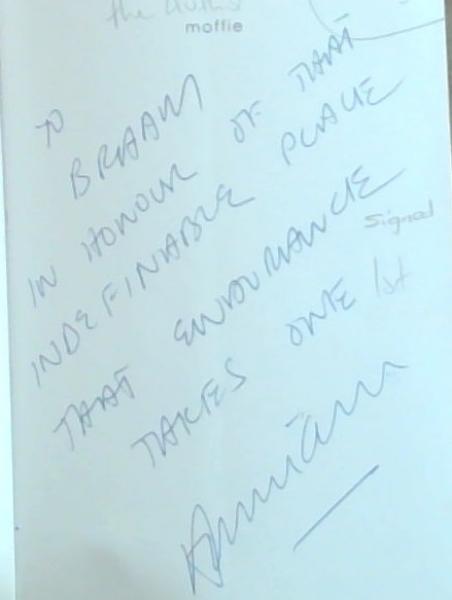 the Author
moffie
TO
BRAAM
IN HONOUR OF THAT
INDEFINABLE PLACE
THAT ENDURANCE
TAKES ONE
Signed
1st